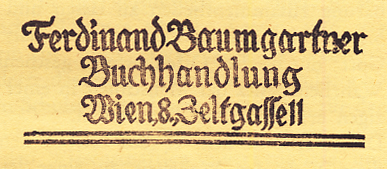 Ferdinand Baumgartner
Buchhandlung
Wien, 8., Zeltgasse 11